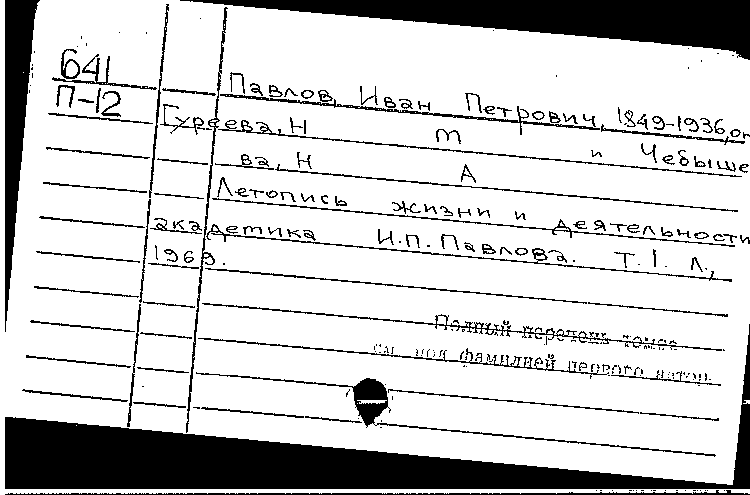 641
П-12
Павлов, Иван Петрович, 1849-1936, о
Гуреева, Н М и Чебыше
ва, Н А
Летопись жизни и деятельности
академика И.П. Павлова. Т.1. Л.,
1969.
Полный перечень томов
см. под фамилией первого автор